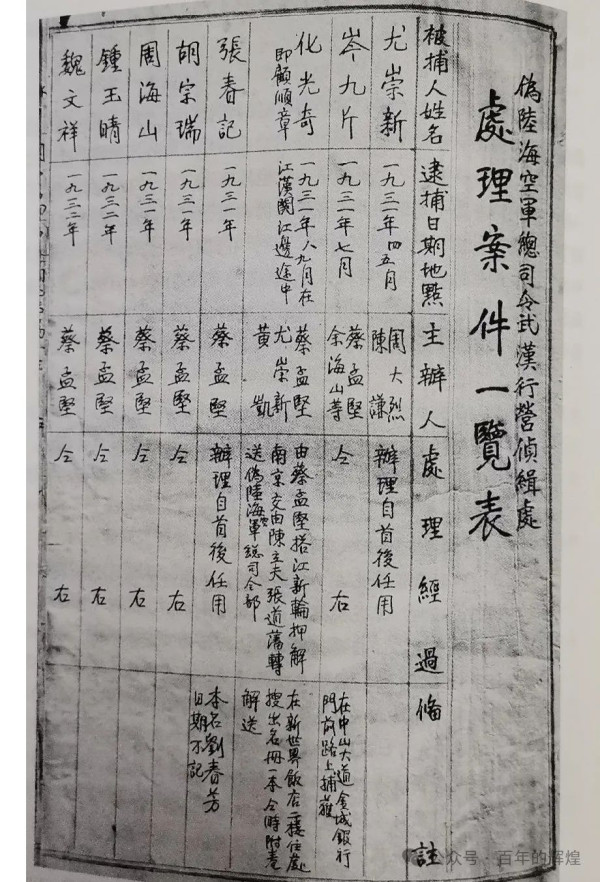 偽陸海空軍總司令武漢行營偵緝處
處理案件一覽表
被捕人姓名 逮捕日期地點 主辦人 處理經過 備註
尤崇新 一九三一年四五月 周大烈 陳謙 辦理自首後任用
岑九片 一九三一年七月 蔡孟堅 余海山等 仝右 在中山大道金城銀行門前路上捕獲
化光奇 即顧順章 一九三一年八九月在江漢關江邊途中 蔡孟堅 尤崇新 黃凱 由蔡孟堅搭江新輪押解南京交由陳立夫張道藩轉送偽陸海空軍總司令部 在新世界飯店二樓住處搜出名冊一本仝時附卷解送
張春記 一九三一年 蔡孟堅 辦理自首後任用 本名劉春芳 日期不記
胡宗瑞 一九三一年 蔡孟堅 仝右
周海山 一九三一年 蔡孟堅 仝右
鍾玉晴 一九三二年 蔡孟堅 仝右
魏文祥 一九三二年 蔡孟堅 仝右
公众号·百年的辉煌